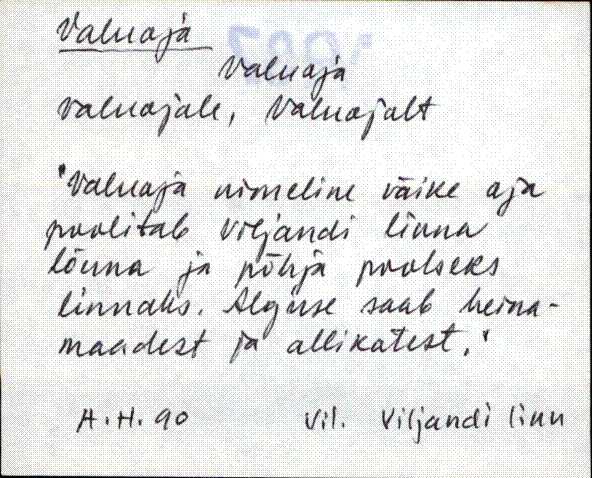 Valuoja
Valuoja
Valuojale, Valuojalt
"Valuoja nimeline väike oja
poolitab Viljandi linna
lõuna ja põhja poolseks
linnaks. Alguse saab heina-
maadest ja allikatest."
H.H. 90 Vil. Viljandi linn